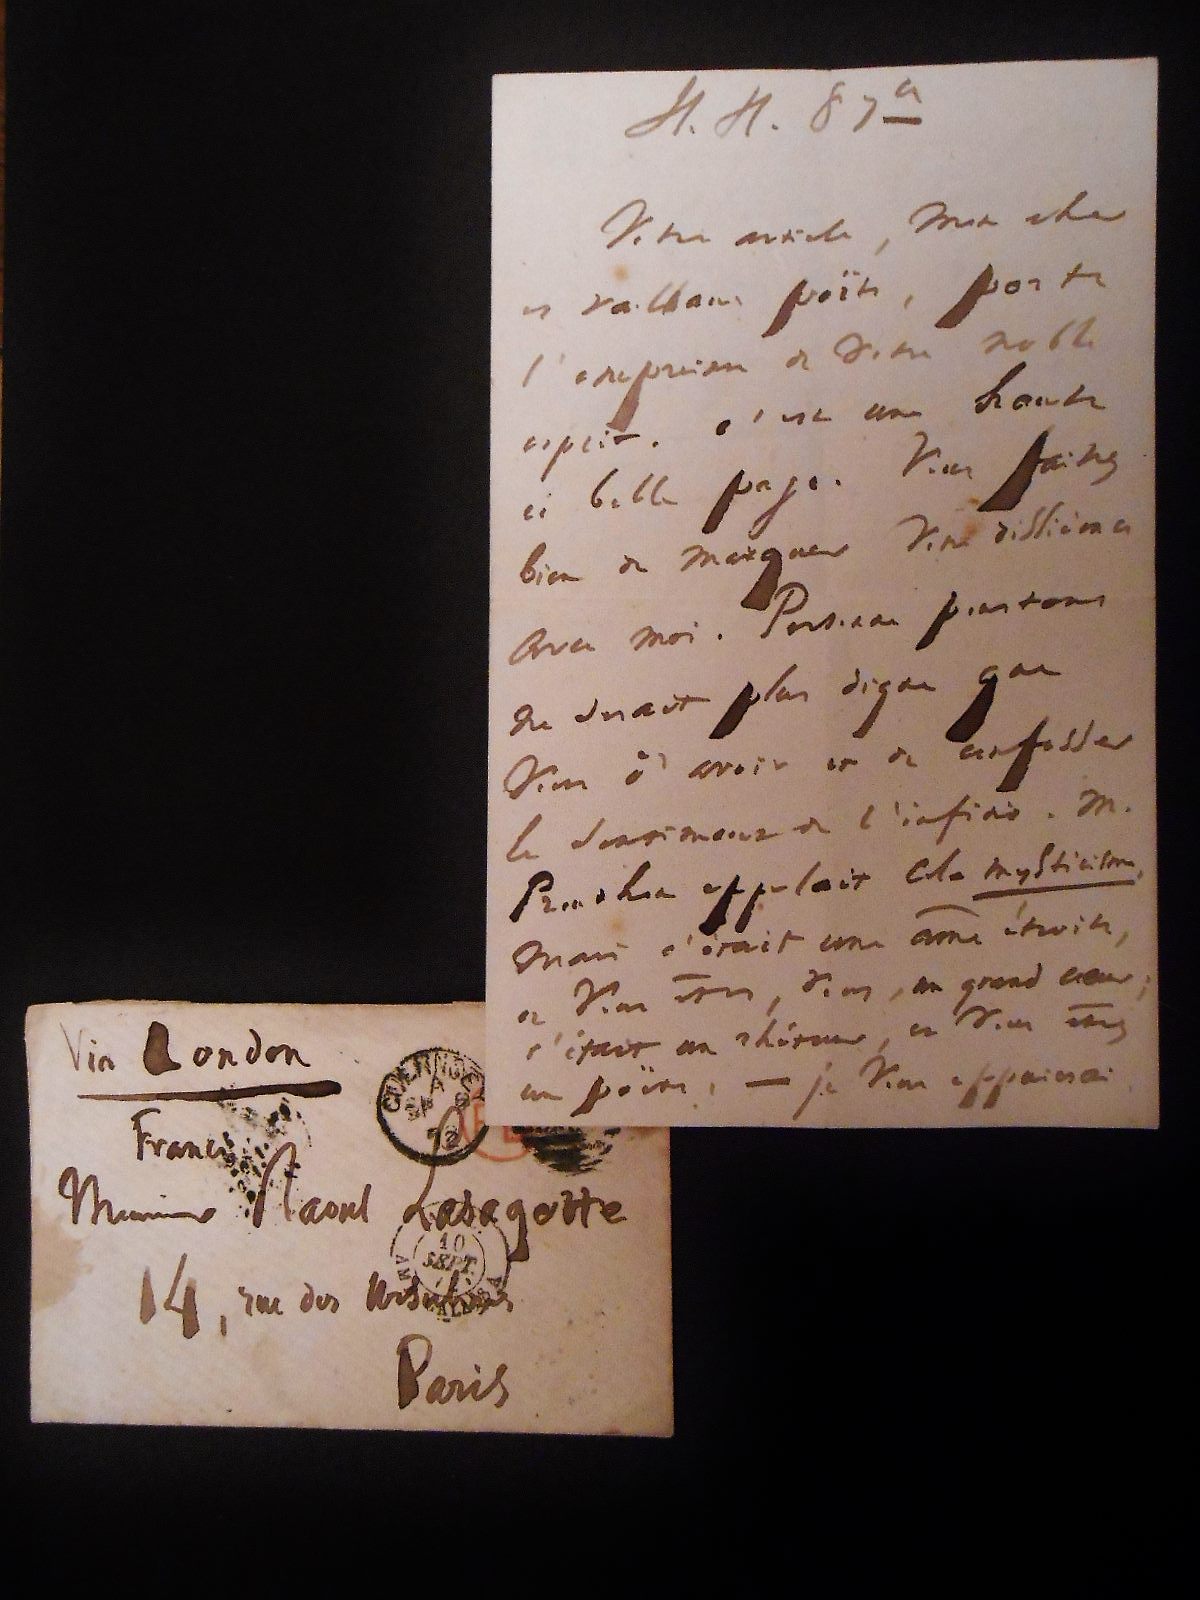 H. H. 87 a
Votre article, mon cher
et vaillant poëte, porte
l'empreinte de votre noble
esprit. c'est une haute
et belle page. Vous faites
bien de marquer votre dissidence
avec moi. Personne pourtant
ne serait plus digne que
vous d'avoir et de confesser
le sentiment de l'infini. M.
Proudhon appelait cela mysticisme,
mais c'était une âme étroite,
et vous êtes, vous, un grand cœur;
c'était un rhéteur, et vous êtes
un poëte. — je vous
Via London
GUERNSEY
France
Monsieur Raoul Lasagotte
10
SEPT.
14, rue des Ursulines
Paris